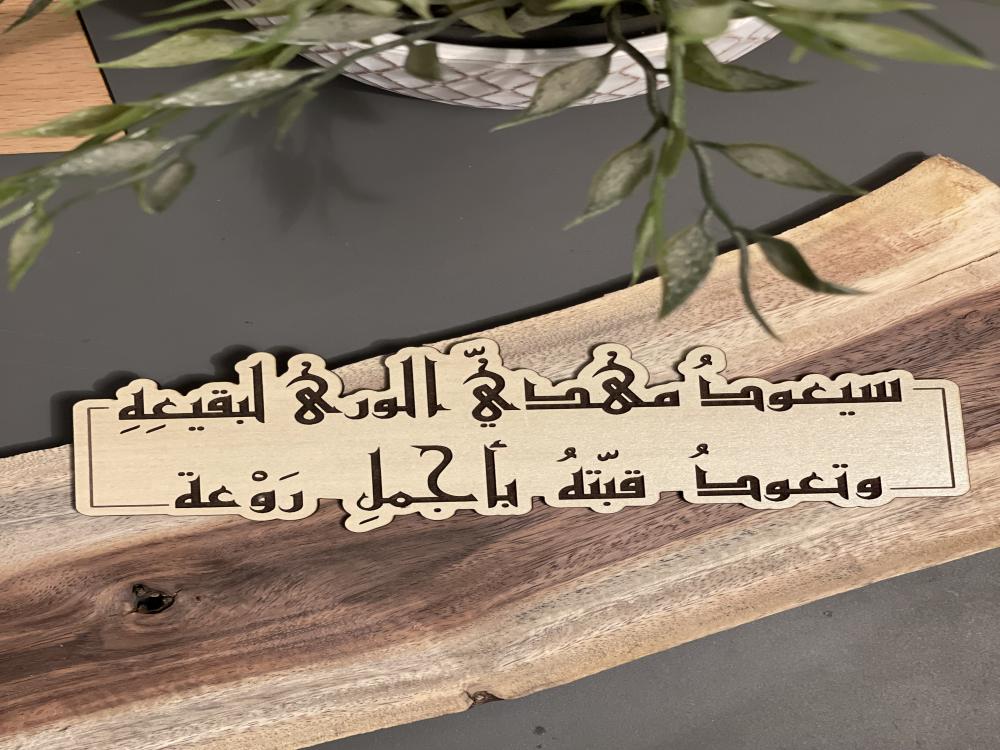 سيعودُ مهديّ الورى لبقيعِهِ
وتعودُ قبّتهُ بأجْملِ رَوْعة